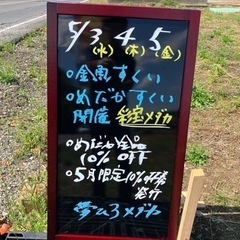 5/3 4 5
(水)(木)(金)
○金魚すくい
○めだかすくい
開催 メダカ
○めだか全品
10% OFF
○5月限定10%
発行
メダカ